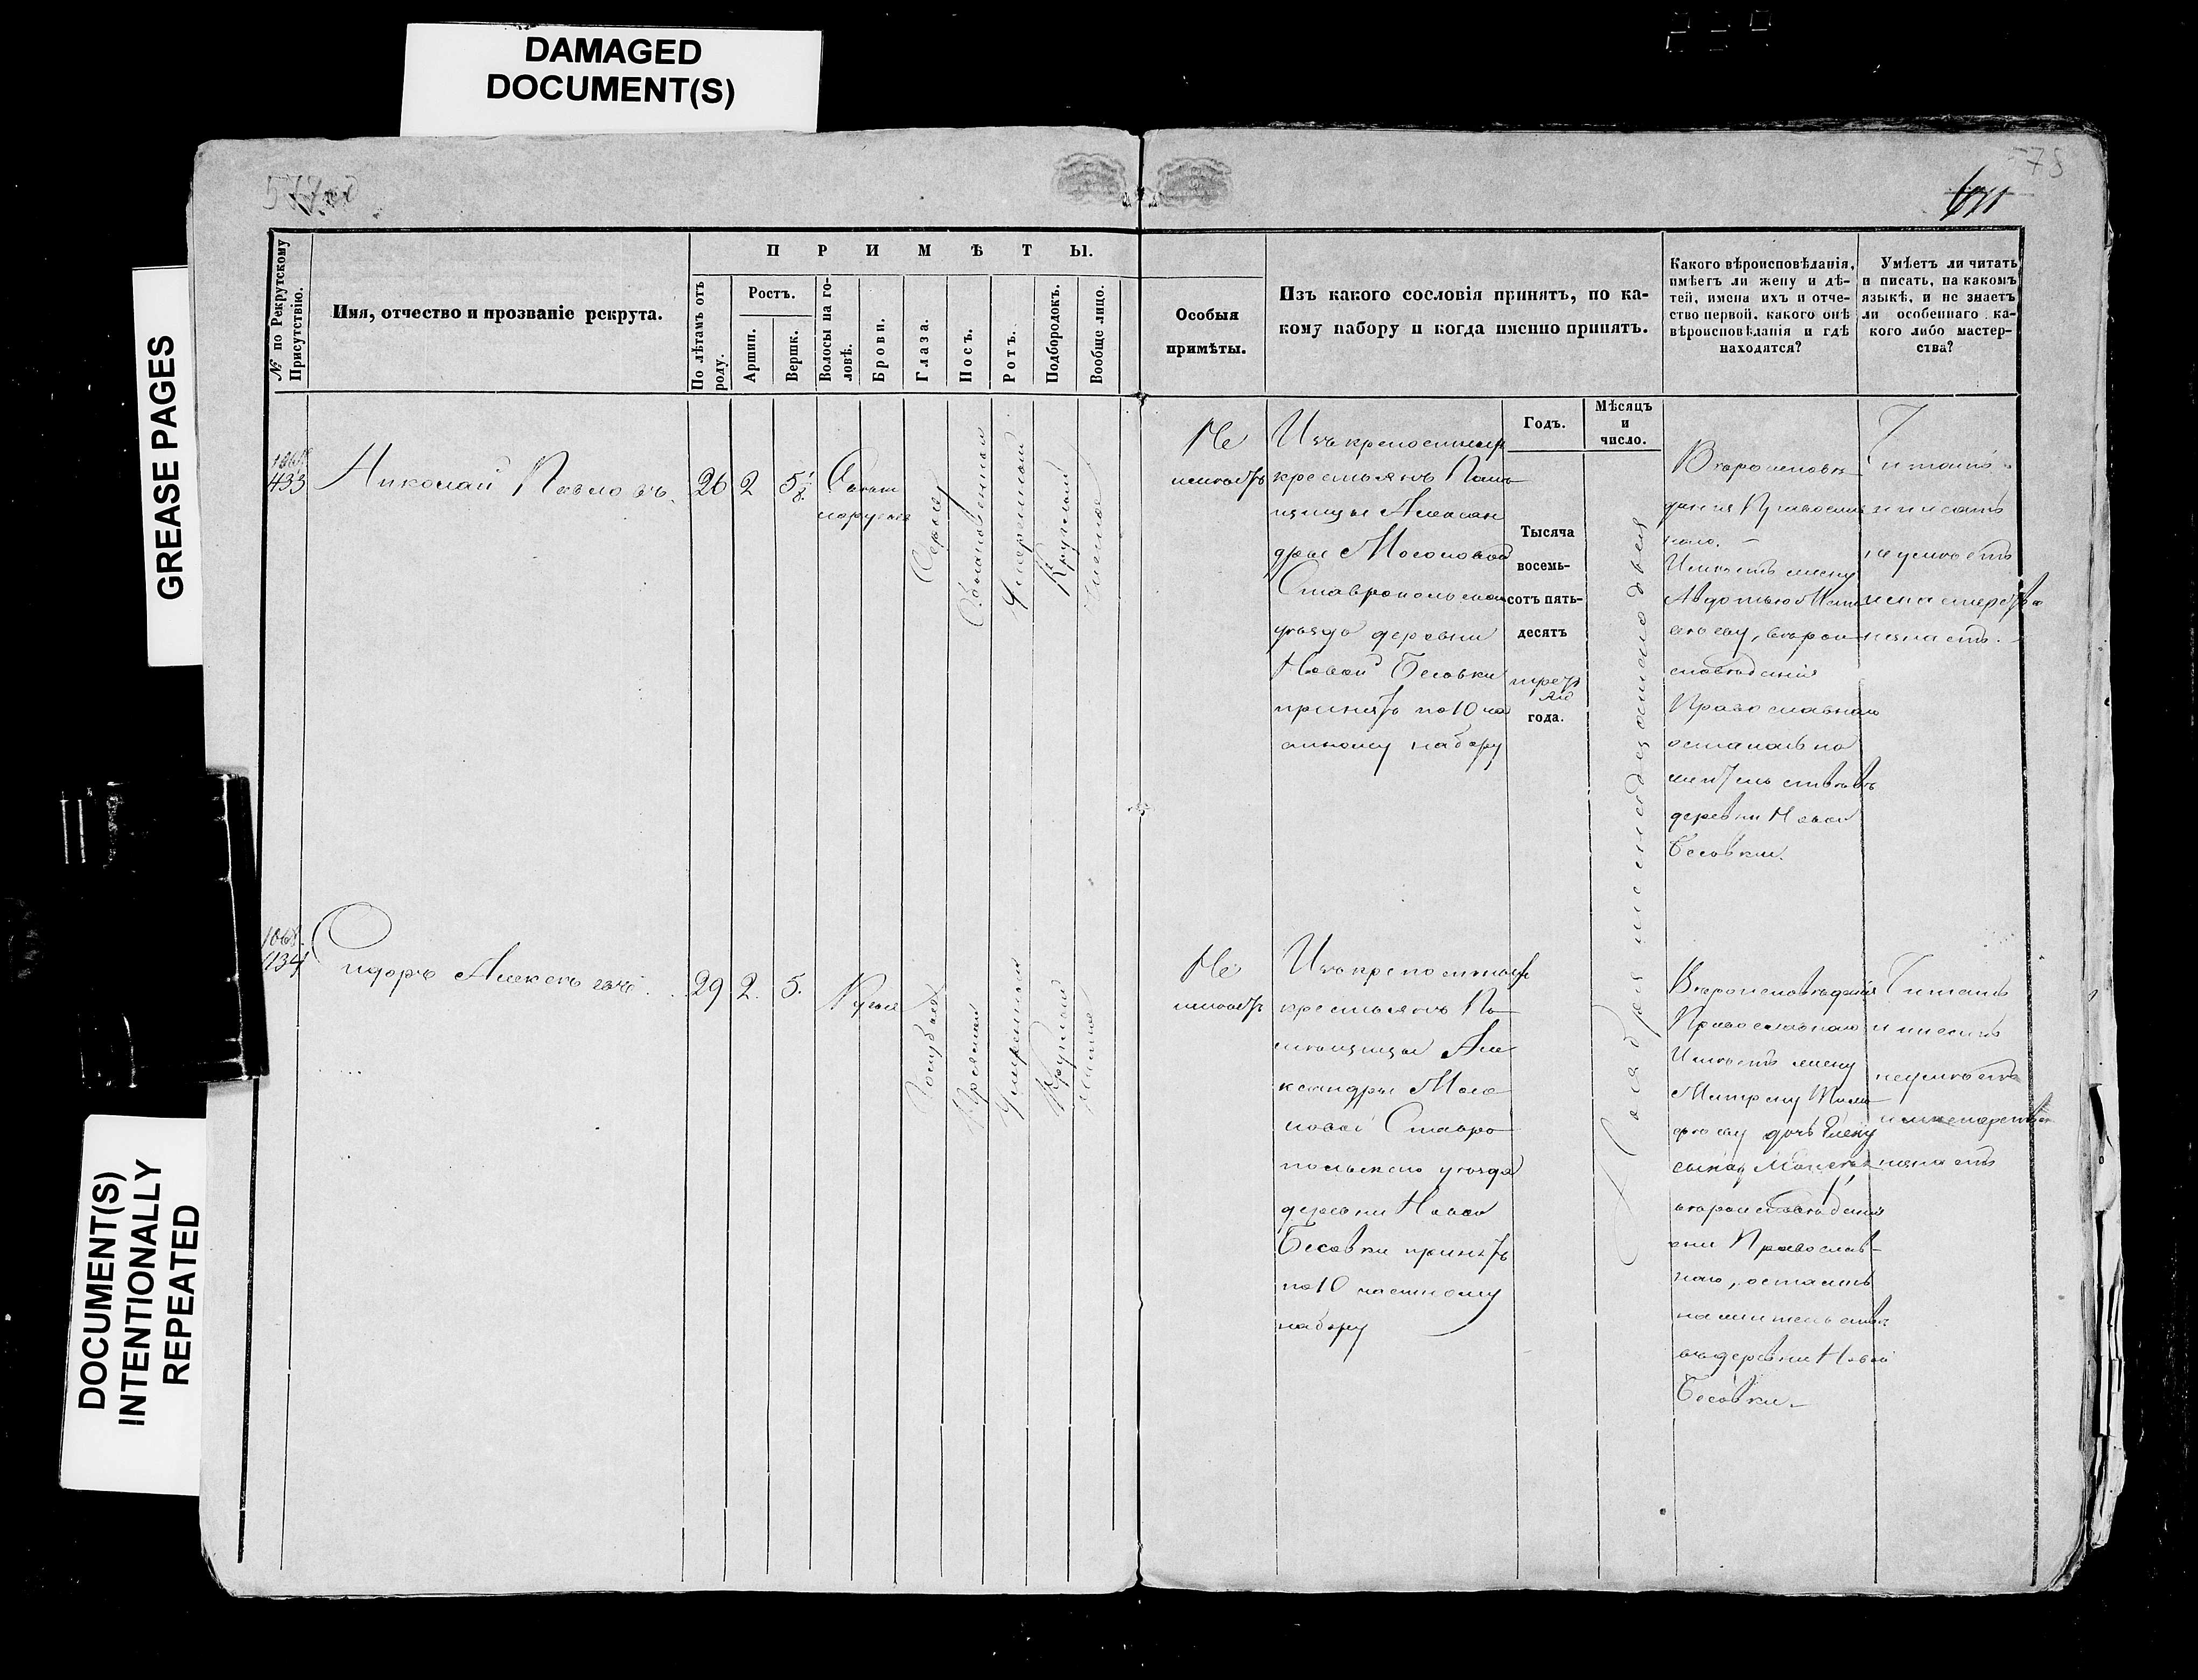 DAMAGED
DOCUMENT(S)
GREASE PAGES
DOCUMENT(S)
INTENTIONALLY
REPEATED
577
578
№ по Рекрутскому
Присутствію.
Имя, отчество и прозваніе рекрута.
ПРИМѢТЫ.
По лѣтамъ отъ
роду.
Ростъ.
Аршин.
Вершк.
Волосы на го-
ловѣ.
Брови.
Глаза.
Носъ.
Ротъ.
Подбородокъ.
Вообще лицо.
Особыя
примѣты.
Изъ какого сословія принятъ, по ка-
кому набору и когда именно принятъ.
Какого вѣроисповѣданія,
имѣетъ ли жену и дѣ-
тей, имена ихъ и отче-
ство первой, какого онѣ
вѣроисповѣданія и гдѣ
находятся?
Умѣетъ ли читать
и писать, на какомъ
языкѣ, и не знаетъ
ли особеннаго ка-
кого либо мастер-
ства?
Годъ.
Мѣсяцъ
и
число.
433
Николай Павловъ.
26
2
5 1/8
Сѣрые
Обыкновенный
Умеренный
Круглый
Чистое
Не
имѣетъ
Изъ крепостныхъ
крестьянъ Поме
щицы Алексан
дры
Ставропольскаго
уѣзда деревни
Новой Бесовки
принятъ по 10 ча
стному набору
Тысяча
восемь-
сотъ пять-
десятъ
третьяго
года.
Ноября
дня
Вѣроисповѣ
данія Православ
наго.
Имѣетъ жену
Авдотью Мат
вѣеву, вѣрои
сповѣданія
Православнаго
осталась на
жительствѣ въ
деревни Новой
Бесовки.
Читать
и писать
не умѣетъ
и мастерства
незнаетъ.
1068.
434
Сидоръ Алексѣевъ.
29
2.
5.
Русые
Голубые
Прямой
Умеренный
Круглый
Чистое
Не
имѣетъ
Изъ крепостныхъ
крестьянъ По
мѣщицы Але
ксандры
Ставро
польскаго уѣзда
деревни Новой
Бесовки принятъ
по 10 частному
набору
Вѣроисповѣданія
Православнаго
Имѣетъ жену
Матрену Тимо
фѣеву дочь Елену
сына
вѣроисповѣданія
они Православ-
наго, остались
на жительствѣ
въ деревни Новой
Бесовки.
Читать
и писать
неумѣетъ
и мастерства
незнаетъ